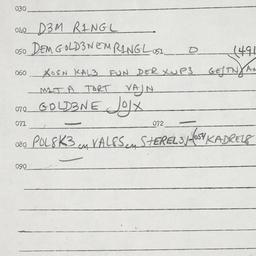 030
040 D3M R1NGL
050 DEM GOLD3NEM R1NGL 051 0 (491
060 XOSN KAL3 FUN DER XUP3 GEJTN
M1T A TORT VAJN
070 GOLD3NE JOJX
071 072
080 POLSK3 en VALSS en STEREL3J 054 KADRELS
090